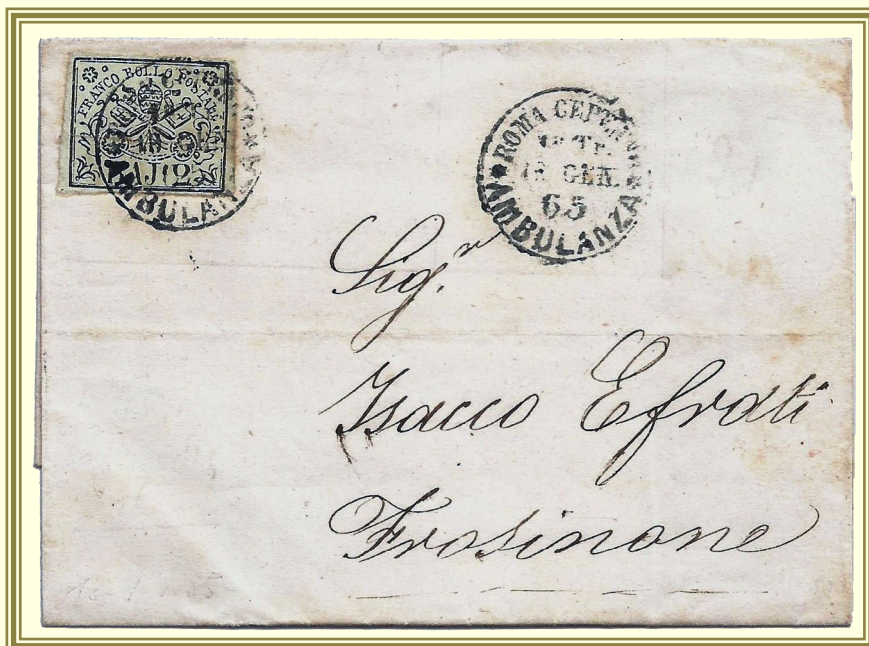 FRANCO BOLLO POSTALE
AMBULANZA
ROMA
1a Tr.
GEN.
65
AMBULANZA
Sig.r
Isacco Efrati
Frosinone